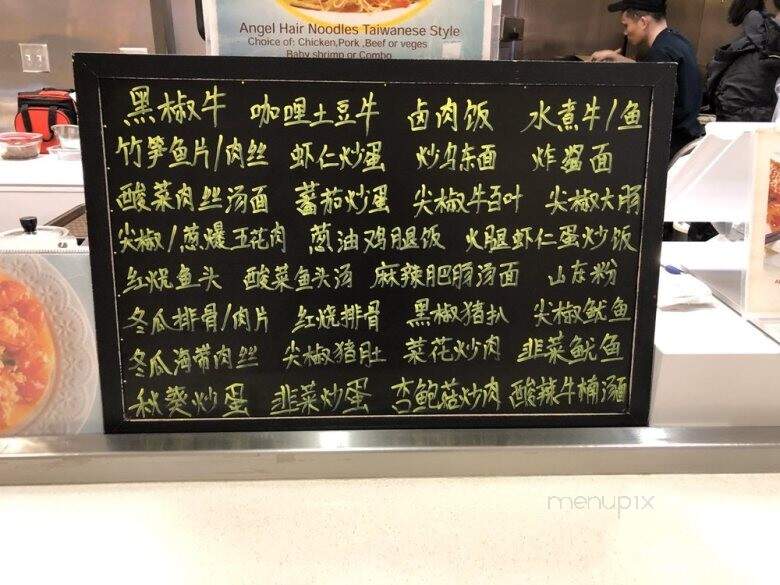 Angel Hair Noodles Taiwanese Style
Choice of: Chicken,Pork ,Beef or veges
Baby shrimp or Combo
黑椒牛 咖哩土豆牛 卤肉饭 水煮牛/鱼
竹笋鱼片/肉丝 虾仁炒蛋 炒乌东面 炸酱面
酸菜肉丝汤面 蕃茄炒蛋 尖椒牛百叶 尖椒大肠
尖椒/葱爆五花肉 葱油鸡腿饭 火腿虾仁蛋炒饭
红烧鱼头 酸菜鱼头汤 麻辣肥肠汤面 山东粉
冬瓜排骨/肉片 红烧排骨 黑椒猪扒 尖椒鱿鱼
冬瓜海带肉丝 尖椒猪肚 菜花炒肉 韭菜鱿鱼
秋葵炒蛋 韭菜炒蛋 杏鲍菇炒肉 酸辣牛楠汤面
menupix